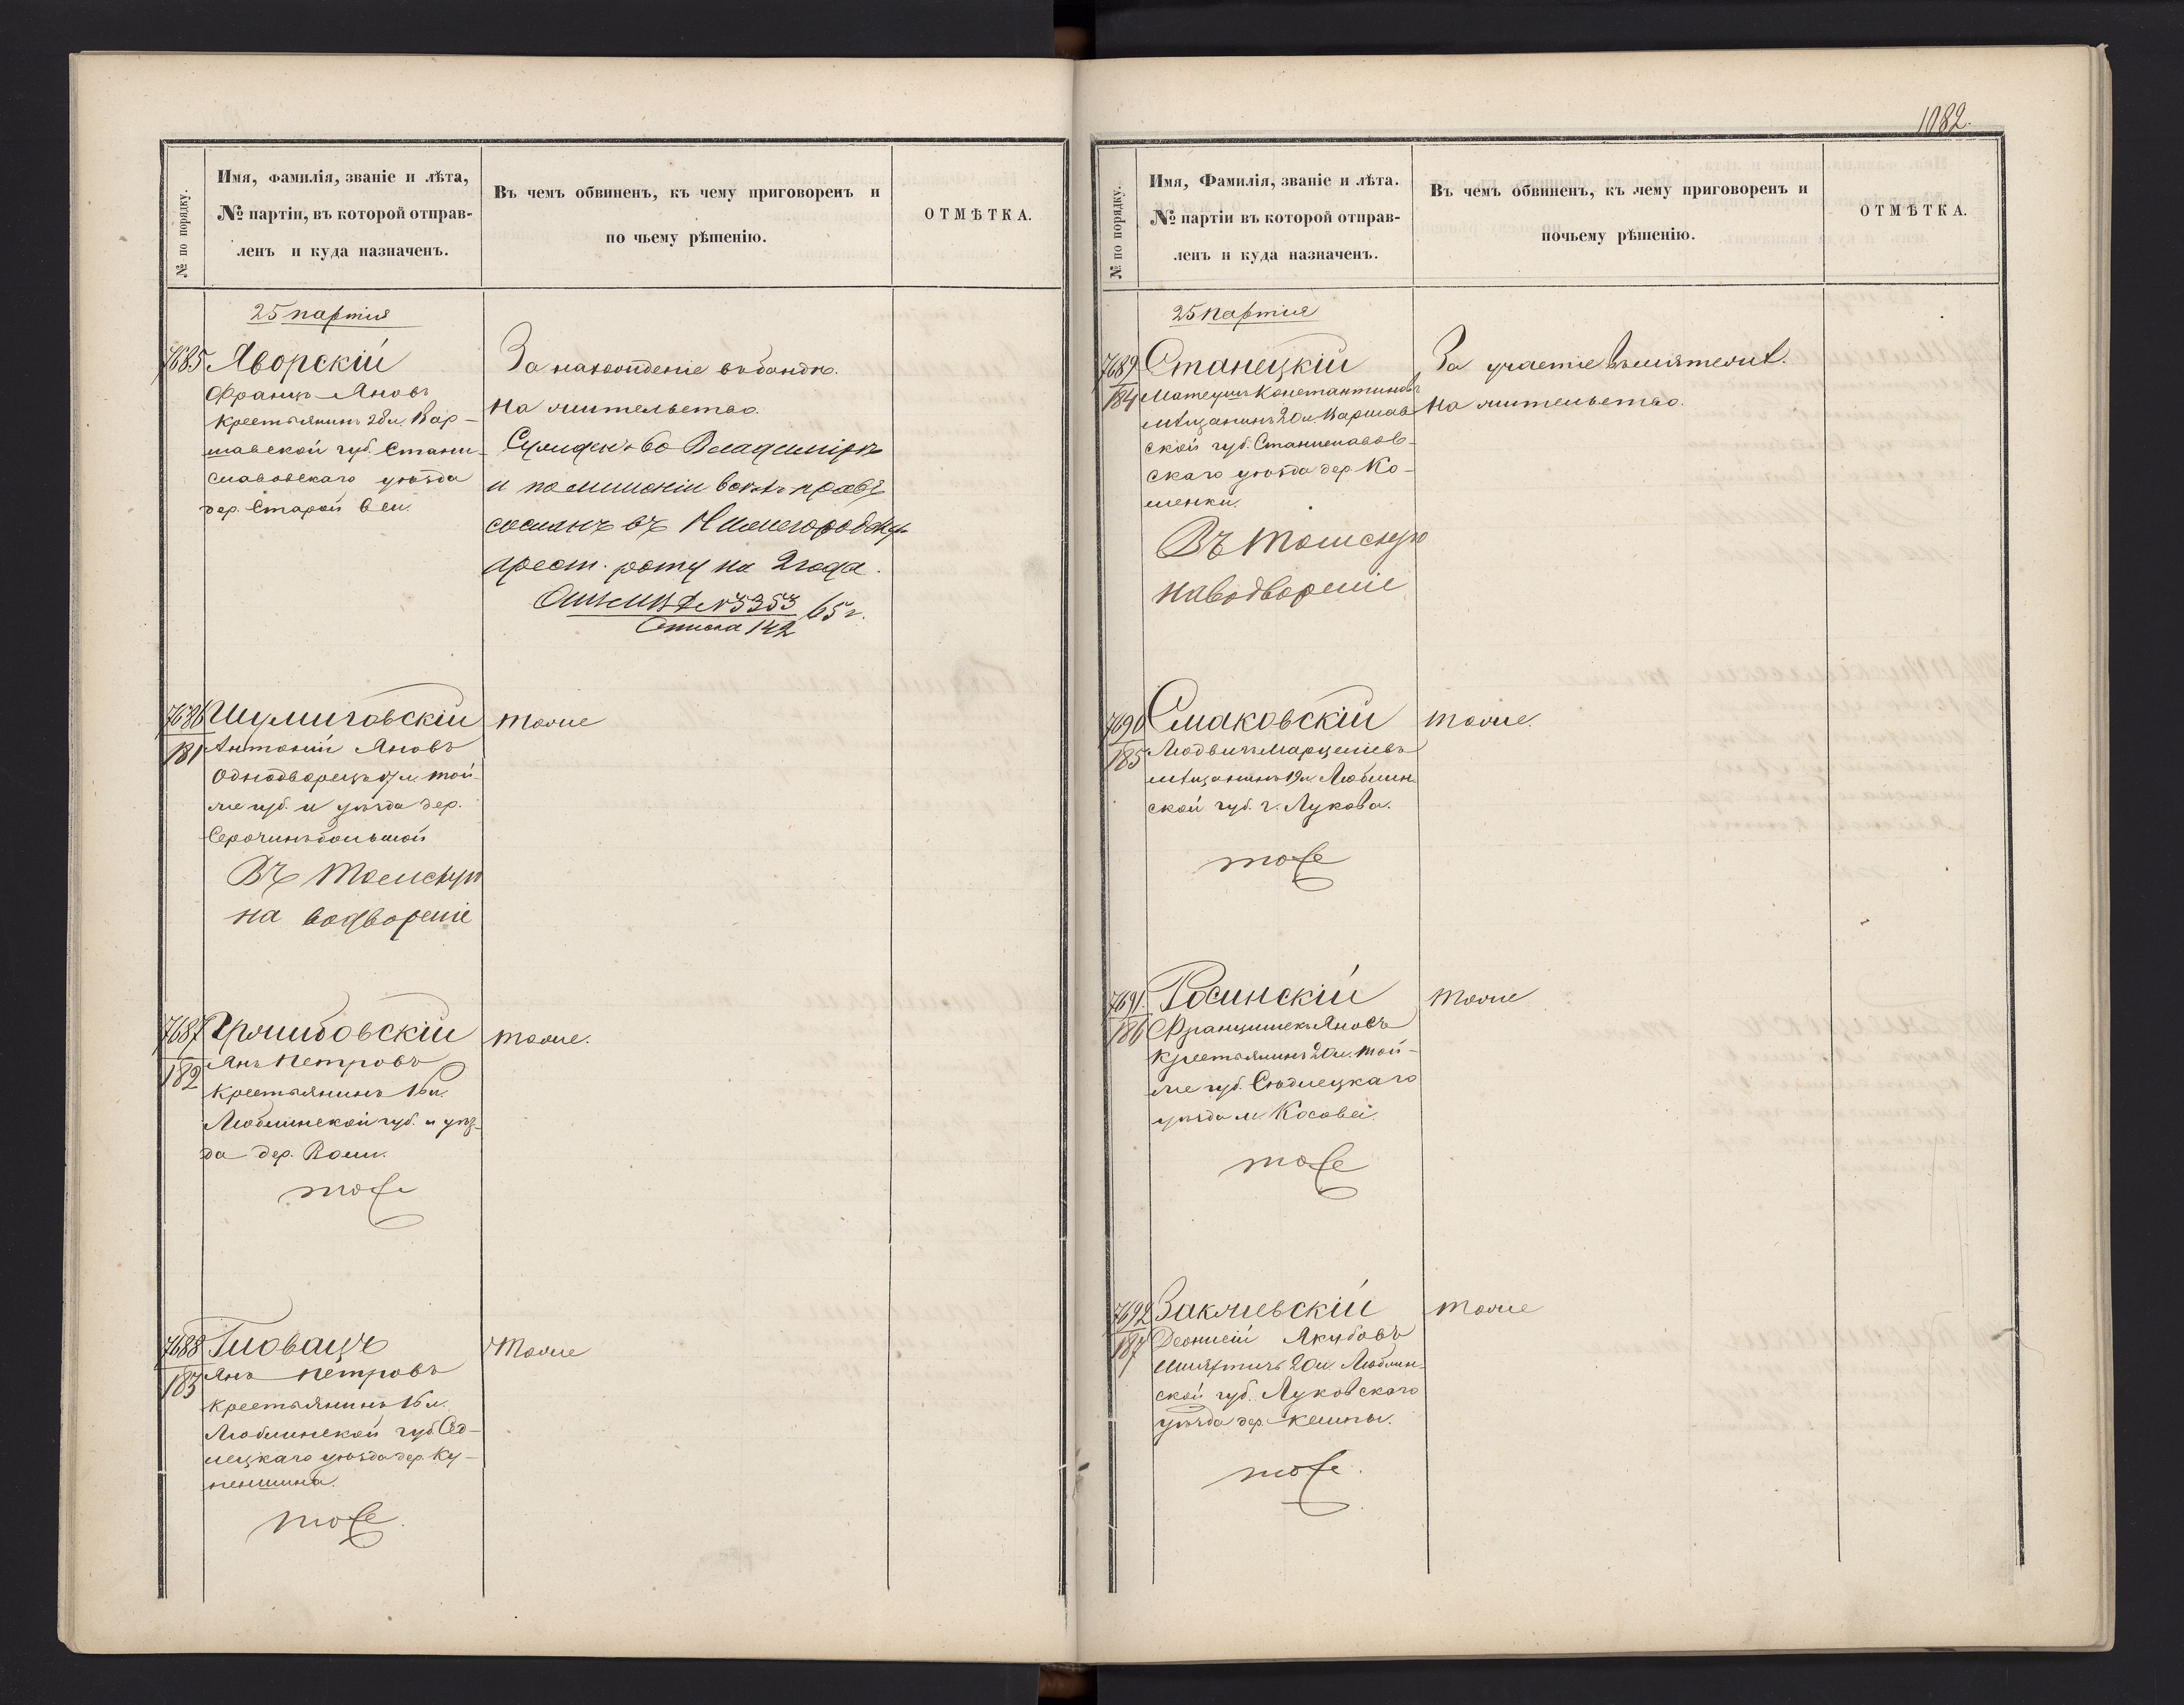 № по порядку.
Имя, Фамилія, званіе и лѣта,
№ партіи, въ которой отправ-
ленъ и куда назначенъ.
Въ чемъ обвиненъ, къ чему приговоренъ и
по чьему рѣшенію.
ОТМѢТКА.
25 партія
7685 Яворскій
Францъ Яновъ
крестьянинъ 28 л. Вар-
шавской губ. Стани-
славовскаго уѣзда
дер. Старой Вси.
За нахожденіе въ бандѣ.
На жительство.
Сужденъ во Владимірѣ
и по лишеніи всѣхъ правъ
сосланъ въ Нижегородскую
арест. роту на 2 года.
№ 5353 65 г.
142
7686 Шумиговскій
181 Антоній Яновъ
Однодворецъ л. той-
же губ. и уѣзда дер.
Серочинъ большой
Въ Томскую
на водвореніе
тоже
7687
182 Янъ Петровъ
крестьянинъ 16 л.
Люблинской губ. и уѣз-
да дер.
тоже
тоже.
7688 Гловацъ
183 Янъ Петровъ
крестьянинъ 16 л.
Люблинской губ. Сѣд-
лецкаго уѣзда дер. Ку-
тоже.
тоже
1082.
№ по порядку.
Имя, Фамилія, званіе и лѣта.
№ партіи въ которой отправ-
ленъ и куда назначенъ.
Въ чемъ обвиненъ, къ чему приговоренъ и
почьему рѣшенію.
ОТМѢТКА.
25 партія
7689 Станецкій
184 Матеушъ Константиновъ
мѣщанинъ 20 л. Варшав-
ской губ. Станиславов-
скаго уѣзда дер. Ко-
менки.
Въ Томскую
на водвореніе
За участіе въ мятежѣ.
На жительство.
7690 Смаковскій
185 Людвигъ Марцеліевъ
мѣщанинъ 19 л. Люблин-
ской губ. г. Лукова.
тоже
тоже.
7691. Росинскій
186 Францишекъ Яновъ
крестьянинъ 20 л. той-
же губ. Сѣдлецкаго
уѣзда м.
тоже
тоже
7692 Закржевскій
187 Деонисій Якубовъ
шляхтичъ 20 л. Люблин-
ской губ. Луковскаго
уѣзда дер. Кемпы.
тоже.
тоже